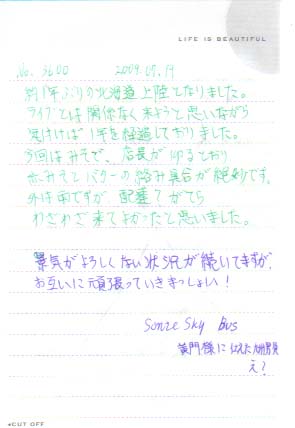 LIFE IS BEAUTIFUL
No. 3600 2009.05.17
約1年ぶりの北海道上陸となりました。
ライブとは関係なく来ようと思いながら
気付けば1年を経過しておりました。
今回はみそで、店長が Oるとおり
赤みそとバターの絡み具合が絶妙です。
外は雨ですが、
わざわざ来てよかったと思いました。
景気がよろしくない状況が続いてますが、
お互いに頑張っていきまっしょい!
Sonze Sky Bus
黄門様に仕えた
え?
CUT OFF